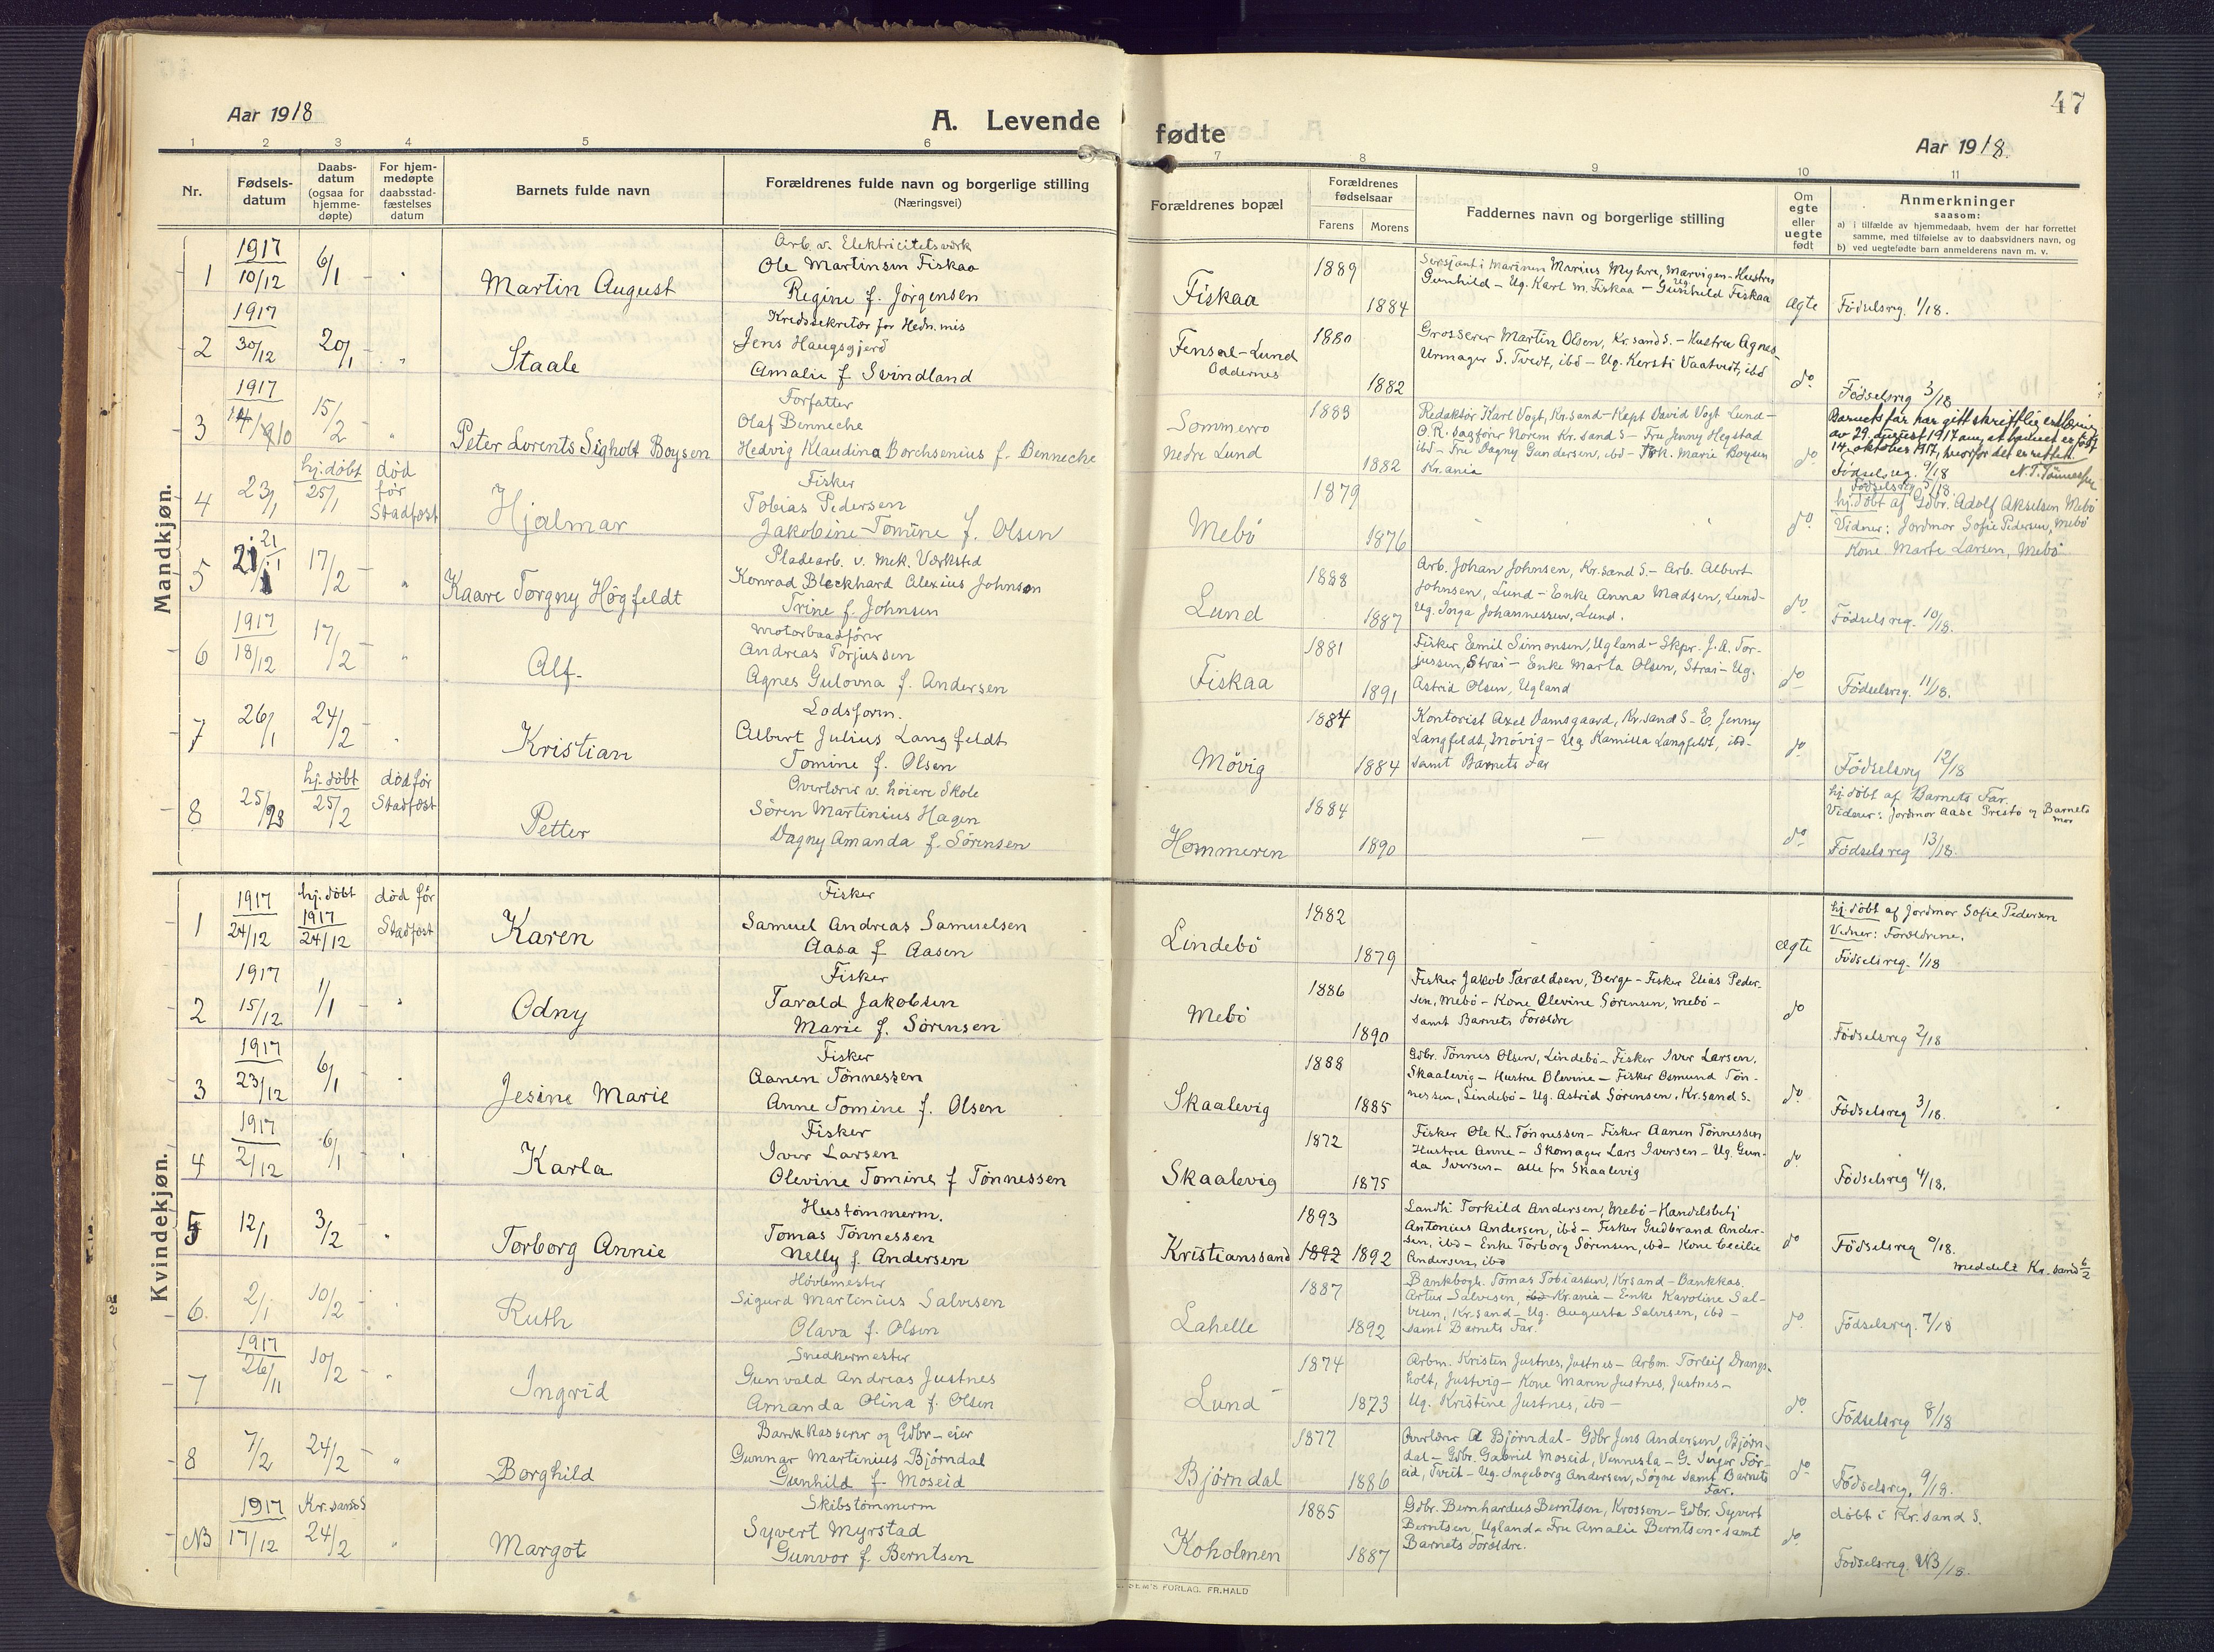 47
Aar 1918
A. Levende fødte
Aar 1918.
1 2 3 4 5 6 7 8 9 10 11
Nr.
Fødsels-
datum
Daabs-
datum
(ogsaa for
hjemme-
døpte)
For hjem-
medøpte
daabsstad-
fæstelses
datum
Barnets fulde navn
Forældrenes fulde navn og borgerlige stilling
(Næringsvei)
Forældrenes bopæl
Forældrenes
fødselsaar
Farens Morens
Faddernes navn og borgerlige stilling
Om
egte
eller
uegte
født
Anmerkninger
saasom:
a) i tilfælde av hjemmedaab, hvem der har forrettet
samme, med tilføielse av to daabsvidners navn, og
b) ved uegtefødte barn anmelderens navn m. v.
Mandkjøn.
1 1917 10/12 6/1 - "
Martin August
Arb. v. Elektricitetsværk
Ole Martinsen Fiskaa
Regine f. Jørgensen
Fiskaa
1889 1884
Sersjant i Marinen Marius Myhre, Marvigen - Hustru
Gunhild - Ug. Karl M. Fiskaa - Ug. Gunhild Fiskaa
ægte
Fødselsreg. 1/18.
2 1917 30/12 20/1 - "
Staale
Kredssekretær for Hedn. mis
Jens Haugsgjerd
Amalie f Svindland
Fensal-Lund
Oddernes
1880 1882
Grosserer Martin Olsen, Kr.sand S. - Hustru Agnes -
Urmager S. Tveit, ibd - Ug. Kersti Vaatveit, ibd
do
Fødselsreg 3/18
3 1917 14/10 15/2 "
Peter Lorents Sigholt Boysen
Forfatter
Olaf Benneche
Hedvig Klaudina Borchsenius f. Benneche
Sommerro
Nedre Lund
1883 1882
Redaktør Karl Vogt, Kr.sand - Kapt David Vogt Lund -
O.R. sagfører Norem Kr.sand S - Fru Jenny Hegstad
ibd - Fru Dagny Gundersen, ibd - Frk. Marie Boysen
Kr.ania
do
Barnets far har gitt skriftlig erklæring
av 29. august 1917 om, at barnet er født
14. oktober 1917, hvorfor det er rettet.
N. T. Tønnessen
Fødselsreg. 9/18
4 23/1 hj. døbt 25/1
død
før
Stadfæst
Hjalmar
Fisker
Tobias Pedersen
Jakobine Tomine f. Olsen
Mebø
1879 1876
do
Fødselsreg. 5/18.
hj. døbt af Gdbr. Adolf Akselsen Mebø
Vidner: Jordmor Sofie Pedersen, Mebø
Kone Marte Larsen, Mebø
5 21/1 17/2 - "
Kaare Torgny Høgfeldt
Pladearb. v. Mek. Værksted
Konrad Bleckhard Alexius Johnsen
Trine f. Johnsen
Lund
1888 1887
Arb. Johan Johnsen, Kr.sand S. - Arb. Albert
Johnsen, Lund - Enke Anna Madsen, Lund -
Ug. Inga Johannessen, Lund.
do
Fødselsreg. 10/18.
6 1917 18/12 17/2 - "
Alf -
Motorbaadfører
Andreas Torjussen
Agnes Gulovna f. Andersen
Fiskaa
1881 1891
Fisker Emil Simonsen, Ugland - Skpr. J. A. Tor-
jussen, Strai - Enke Marta Olsen, Strai - Ug.
Astrid Olsen, Ugland
do
Fødselsreg. 11/18.
7 26/1 24/2 - "
Kristian
Lodsform.
Albert Julius Langfeldt
Tomine f. Olsen
Møvig
1884 1884
Kontorist Axel Damsgaard, Kr.sand S - E. Jenny
Langfeldt, Møvig - Ug Kamilla Langfeldt, ibd -
samt Barnets Far
do
Fødselsreg 12/18
8 25/2 hj. døbt 25/2
død før
Stadfæst
Petter
Overlærer v. høiere Skole
Søren Martinius Hagen
Dagny Amanda f. Sørensen
Hommeren
1884 1890
-
do
hj. døbt af Barnets Far.
Vidner: Jordmor Aase Presto og Barnets
Mor
Fødselsreg 13/18.
Kvindekjøn.
1 1917 24/12 hj. døbt 1917 24/12
død før
Stadfæst
Karen
Fisker
Samuel Andreas Samuelsen
Aasa f Aasen
Lindebø
1882 1879
ægte
hj. døbt af Jordmor Sofie Pedersen
Vidner: Forældrene.
Fødselsreg. 1/18
2 1917 15/12 1/1 - "
Odny
Fisker
Tarald Jakobsen
Marie f. Sørensen
Mebø
1886 1890
Fisker Jakob Taraldsen, Berge - Fisker Elias Peder-
sen, Mebø - Kone Olevine Sørensen, Mebø -
samt Barnets Forældre
do
Fødselsreg 2/18
3 1917 23/12 6/1 - "
Jesine Marie
Fisker
Aanen Tønnessen
Anne Tomine f. Olsen
Skaalevig
1888 1885
Gdbr. Tønnes Olsen, Lindebø - Fisker Iver Larsen.
Skaalevig - Hustru Olevine - Fisker Osmund Tøn-
nessen, Lindebø - Ug. Astrid Sørensen, Kr.sand S.
do
Fødselsreg 3/18.
4 1917 2/12 6/1 "
Karla
Fisker
Iver Larsen
Olevine Tomine f Tønnessen
Skaalevig
1872 1875
Fisker Ole K. Tønnessen - Fisker Aanen Tønnessen
Hustru Anne - Skomager Lars Iversen - Ug. Gun-
da Iversen - alle fra Skaalevig
do
Fødselsreg 4/18.
5 12/1 3/2 "
Torborg Annie
Hustømmerm.
Tomas Tønnessen
Nelly f. Andersen
Kristianssand
1893 1892 1892
Landh. Torkild Andersen, Mebø - Handelsbetj
Antonius Andersen, ibd - Fisker Gudbrand Ander-
sen, ibd - Enke Torborg Sørensen, ibd - Kone Cecilie
Andersen, ibd
do
Fødselsreg 0/18.
meddelt Kr.sand 6/2
6. 2/1 10/2 "
Ruth
Høvlemester
Sigurd Martinius Salvesen
Olava f. Olsen
Lahelle
1887 1892
Bankbogh. Tomas Tobiassen, Kr.sand - Bankkas.
Artur Salvesen, ibd Kr.ania - Enke Karoline Sal-
vesen, Kr.sand - Ug. Augusta Salvesen, ibd -
samt Barnets Far.
do
Fødselsreg. 7/18
7 1917 26/11 10/2 - "
Ingrid
Snedkermester
Gunvald Andreas Justnes
Amanda Olina f. Olsen
Lund
1874 1873
Arbm. Kristen Justnes, Justnes - Arbm. Torleif Drangs-
holt, Justvig - Kone Maren Justnes, Justnes -
Ug. Kristine Justnes, ibd -
do
Fødselsreg. 8/18
8 7/2 24/2 - "
Borghild
Bankkasserer og Gdbr-eier
Gunnar Martinius Bjørndal
Gunhild f. Moseid
Bjørndal
1877 1886
Overlærer A Bjørndal - Gdbr Jens Andersen, Bjørn-
dal - Gdbr. Gabriel Moseid, Vennesla - G. Inger For-
eid, Tveit - Ug. Ingeborg Andersen, Søgne samt Barnets
Far.
do
Fødselsreg. 9/18.
NB 1917 17/12 Kr.sand S 24/2 "
Margot
Skibstømmerm
Syvert Myrstad
Gunvor f. Berntsen
Koholmen
1885 1887
Gdbr. Bernhardus Berntsen, Krossen - Gdbr. Syvert
Berntsen, Ugland - Fru Amalie Berntsen - samt
Barnets Forældre.
do
døbt i Kr.sand S.
Fødselsreg. NB/18.
SEM'S FORLAG. FR.HALD